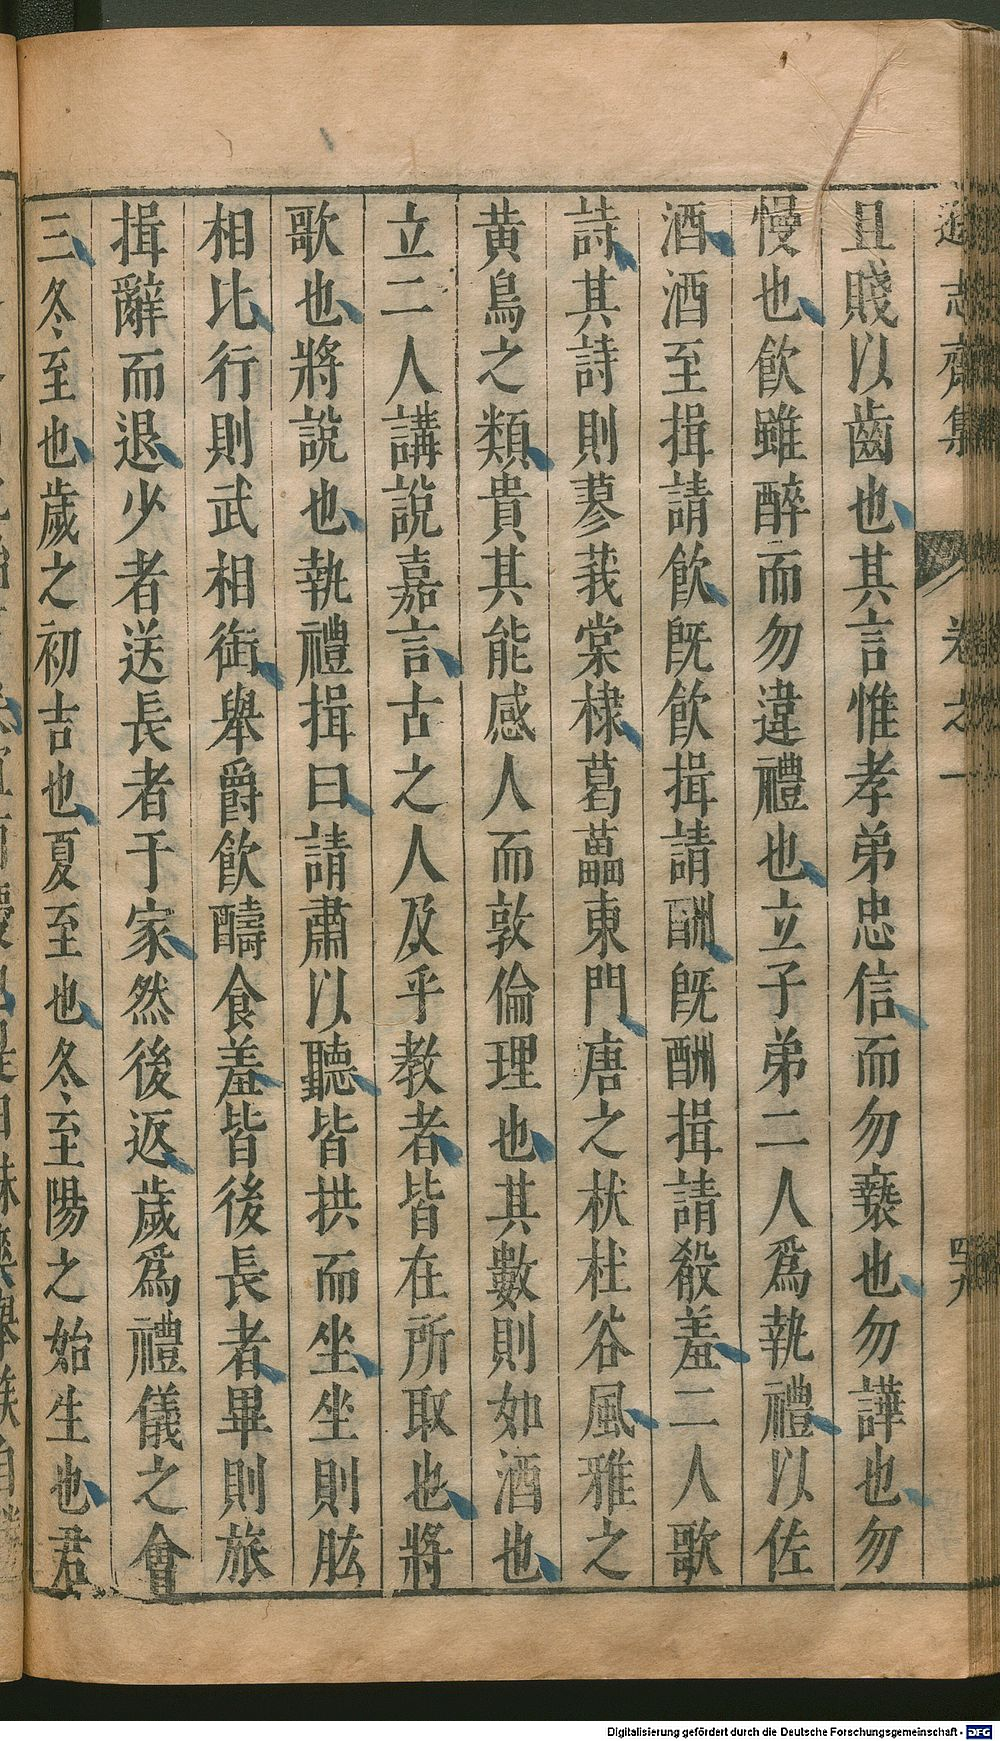 遜志齋集 卷之一 四九
且賤以齒也其言惟孝弟忠信而勿褻也勿譁也勿
慢也飲雖醉而勿違禮也立子弟二人爲執禮以佐
酒酒至揖請飲旣飲揖請酬旣酬揖請殽羞二人歌
詩其詩則蓼莪棠棣葛藟東門唐之杕杜谷風雅之
黄鳥之類貴其能感人而敦倫理也其數則如酒也
立二人講說嘉言古之人及乎教者皆在所取也將
歌也將說也執禮揖曰請肅以聽皆拱而坐坐則肱
相比行則武相銜舉爵飲醻食羞皆後長者畢則旅
揖辭而退少者送長者于家然後返歲爲禮儀之會
三冬至也歲之初吉也夏至也冬至陽之始生也君
Digitalisierung gefördert durch die Deutsche Forschungsgemeinschaft - DFG